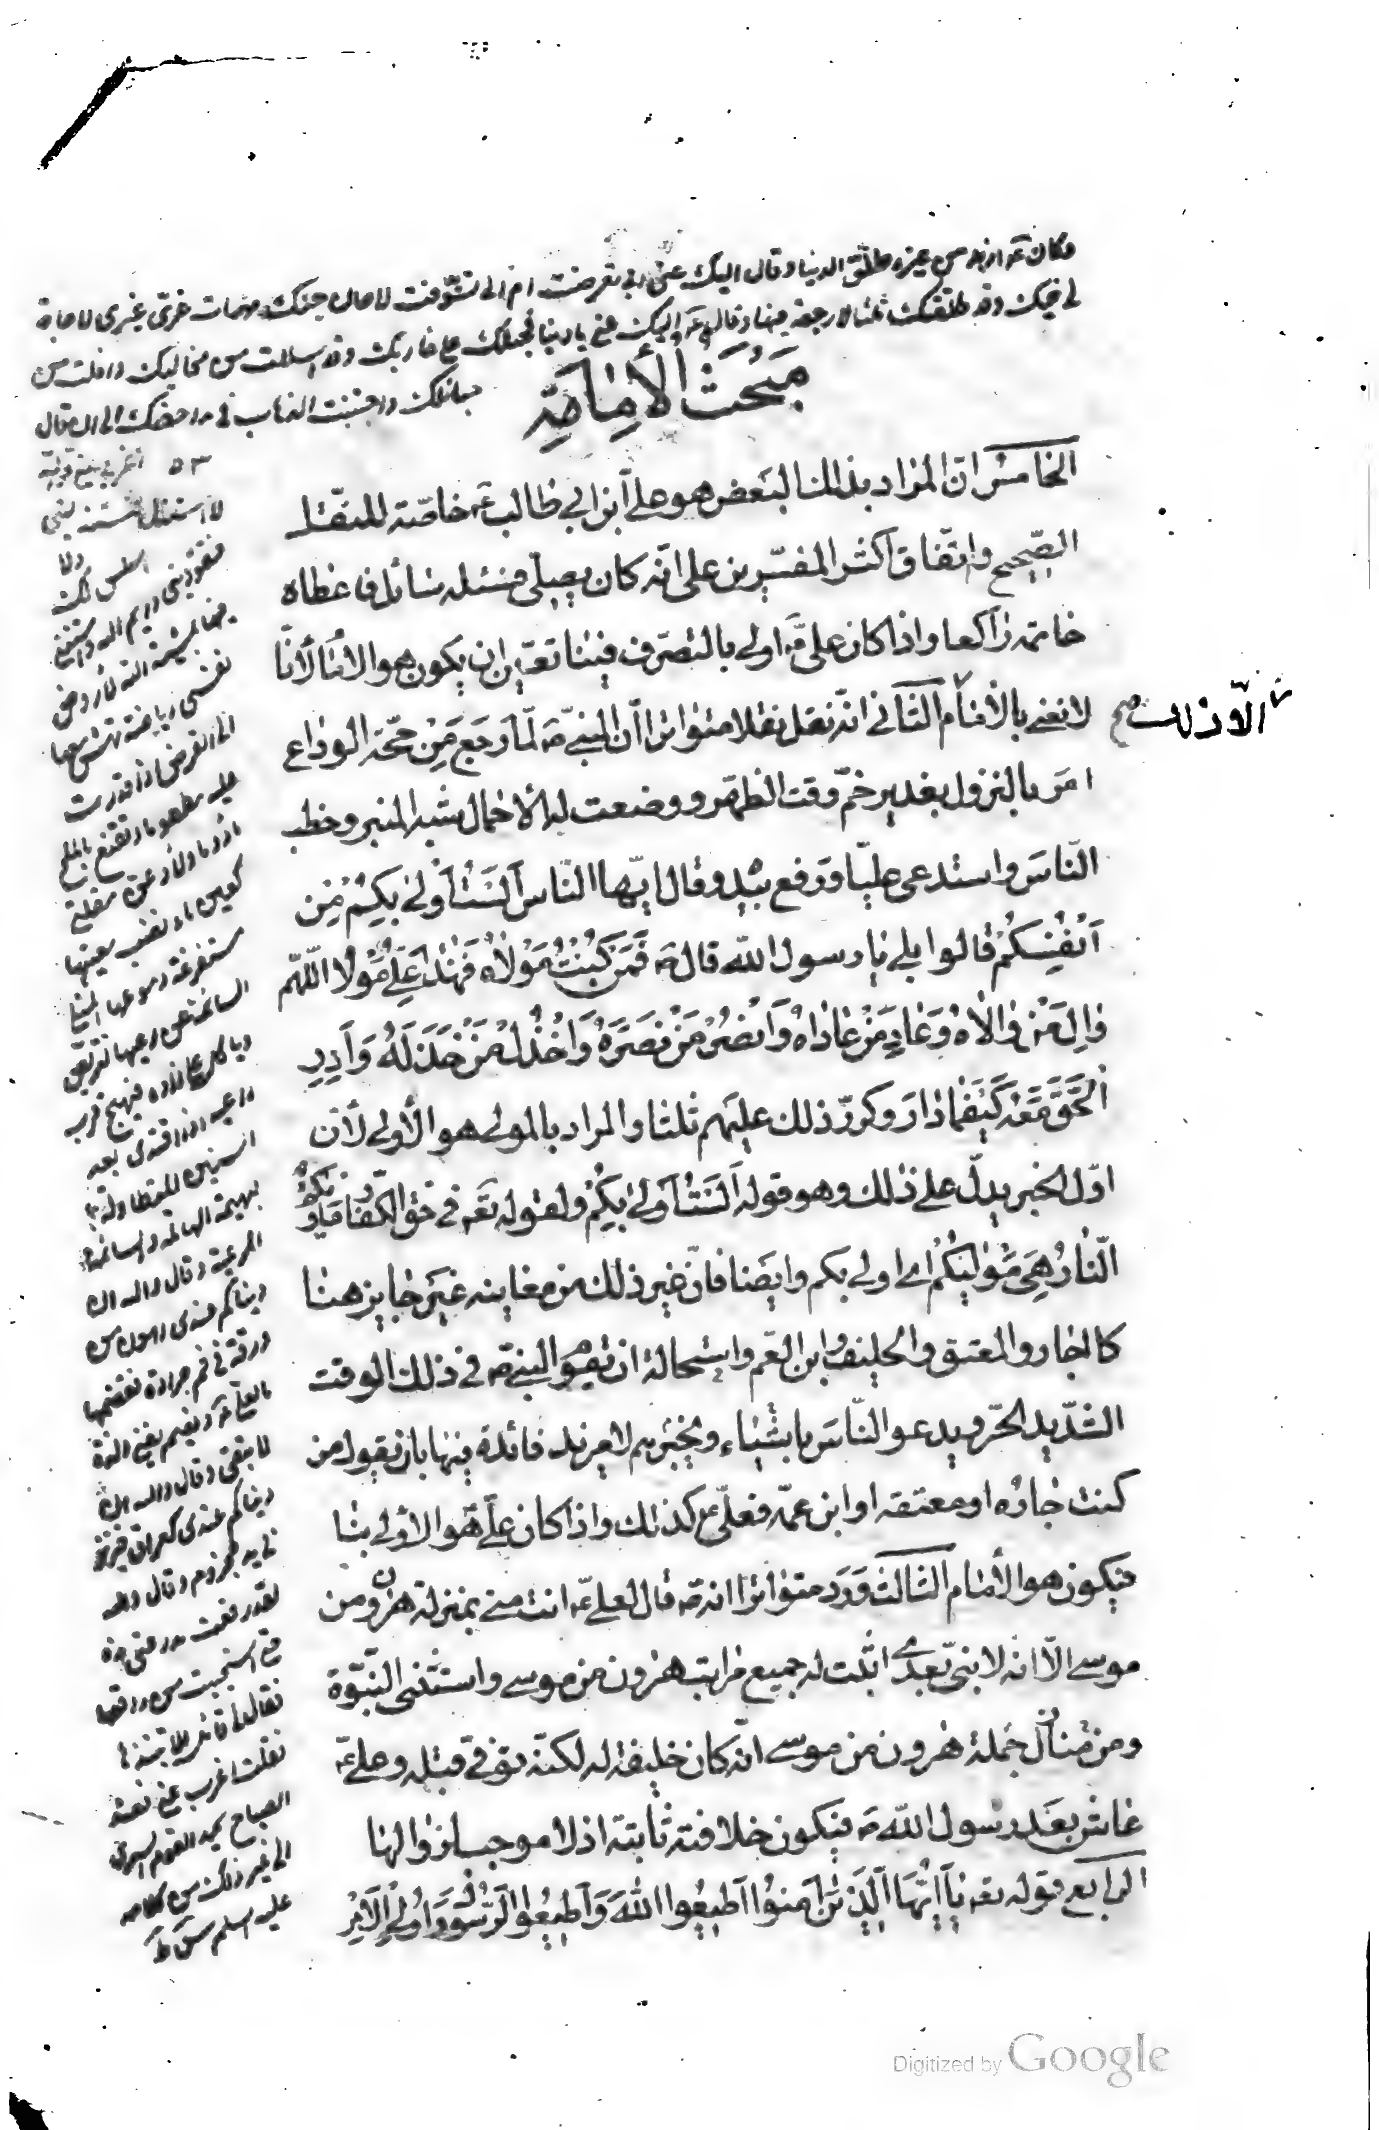 وكان ع ازهد من غيره طلق الدنيا وقال اليك عني ابي تعرضت ام الي تشوقت لا حان حينك هيهات غري غيري لا حاجة
لي فيك وقد طلقتك ثلثا لا رجعة فيها وقال ع اليك عني يا دنيا فحبلك على غاربك وقد انسللت من مخاليبك وافلت من
حبائلك واجتنبت الذهاب في مداحضك الى ان قال
مَبحَثُ الأمامة
الخامس ان المراد بذلك البعض هو علي ابن ابي طالب ع خاصّة للنقل
الصّحيح واتّفاق اكثر المفسّرين على انّه كان يصلّي فسئله سائل فاعطاه
خاتمه راكعا واذا كان علي ع اولى بالتصرّف فينا تعيّن ان يكون هو الامام لأنّا
لا نعني بالأمام الّا ذلك صح الثاني انّه نقل نقلا متواترا ان النبي ص لمّا رجع مِن حجّة الوداع
امرَ بالنزول بغدير خمّ وقت الظهر ووضعت له الأحمال شبه المنبر وخطب
النّاسَ واستدعى عليّا ورفع بيده وقال ايّها النّاس اَلَسْتُ اَوْلى بِكُمْ مِن
اَنْفُسِكُمْ قالوا بلى يا رسول الله قال ص فَمَنْ كُنْتُ مَوْلاهُ فَهٰذا عَلِيٌّ مَوْلاهُ اللّهم
والِ مَنْ والاهُ وَعادِ مَنْ عاداهُ وَانْصُرْ مَنْ نَصَرَهُ وَاخْذُلْ مَنْ خَذَلَهُ وَاَدِرِ
الْحَقَّ مَعَهُ كَيْفَما دارَ وكرّر ذلك عليهم ثلثا والمراد بالمولى هو الأولى لأن
اوّل الخبر يدلّ على ذلك وهو قوله اَلَسْتُ اَوْلى بِكُمْ ولقوله تعه في حقّ الكفّار مَأوٰيكُمُ
النّارُ هِيَ مَوْلٰيكُمْ اي اولى بكم وايضا فانّ غير ذلك من معانيه غير جايز هنا
كالجار والمعتق والحليف وابن العمّ واستحالة ان يقوم النبي ص في ذلك الوقت
الشّديد الحرّ ويدعو النّاسَ باشياء ويخبرهم لا مزيد فائدة فيها بان يقول من
كنت جاره او معتقه او ابن عمّه فعليّ ع كذلك واذا كان عليّ ع هو الاولى بنا
فيكون هو الأمام الثالث ورد متواترا انه ص قال لعلي ع انت مني بمنزلة هرون من
موسى الّا انه لا نبيّ بعدي اثبت له جميع مراتب هرون من موسى واستثنى النّبوّة
ومن جملة منازل هرون من موسى انّه كان خليفة له لكنّه توفّي قبله وعلي ع
عاش بعد رسول الله ص فيكون خلافته ثابتة اذ لا موجب لزوالها
الرابع قوله تعه يٰا اَيُّهَا الَّذينَ اٰمَنُوا اَطيعُوا اللهَ وَاَطيعُوا الرَّسُولَ وَاُولِي الْاَمْرِ
اعزبي عني فوالله
لا استذل لك فتستذليني
ولا
اسلس لك
فتقوديني وايم الله
يمينا استثني
فيها بمشية الله لأروضن
نفسي رياضة تهش معها
الى القرص اذا قدرت
عليه مطعوما وتقنع بالملح
مأدوما ولأدعن مقلتي
كعين ماء نضب معينها
مستفرغة دموعها اتمتلئ
السائمة من رعيها فتبرك
ويأكل علي من زاده فيهجع قرت
اذا عينه اذا اقتدى بعد
السنين المتطاولة
بالبهيمة الهاملة والسائمة
المرعية وقال والله ان
دنياكم عندي لأهون من
ورقة في فم جرادة تقضمها
ما لعلي ع ونعيم يفنى ولذة
لا تبقى وقال والله ان
دنياكم عندي كعراق خنزير
في يد مجذوم وقال والله
لقد رقعت مدرعتي هذه
حتى استحييت من راقعها
فقال لي قائل الا تنبذها
فقلت اغرب عني فعند
الصباح يحمد القوم السرى
الى غير ذلك من كلامه
عليه السلم
Digitized by Google